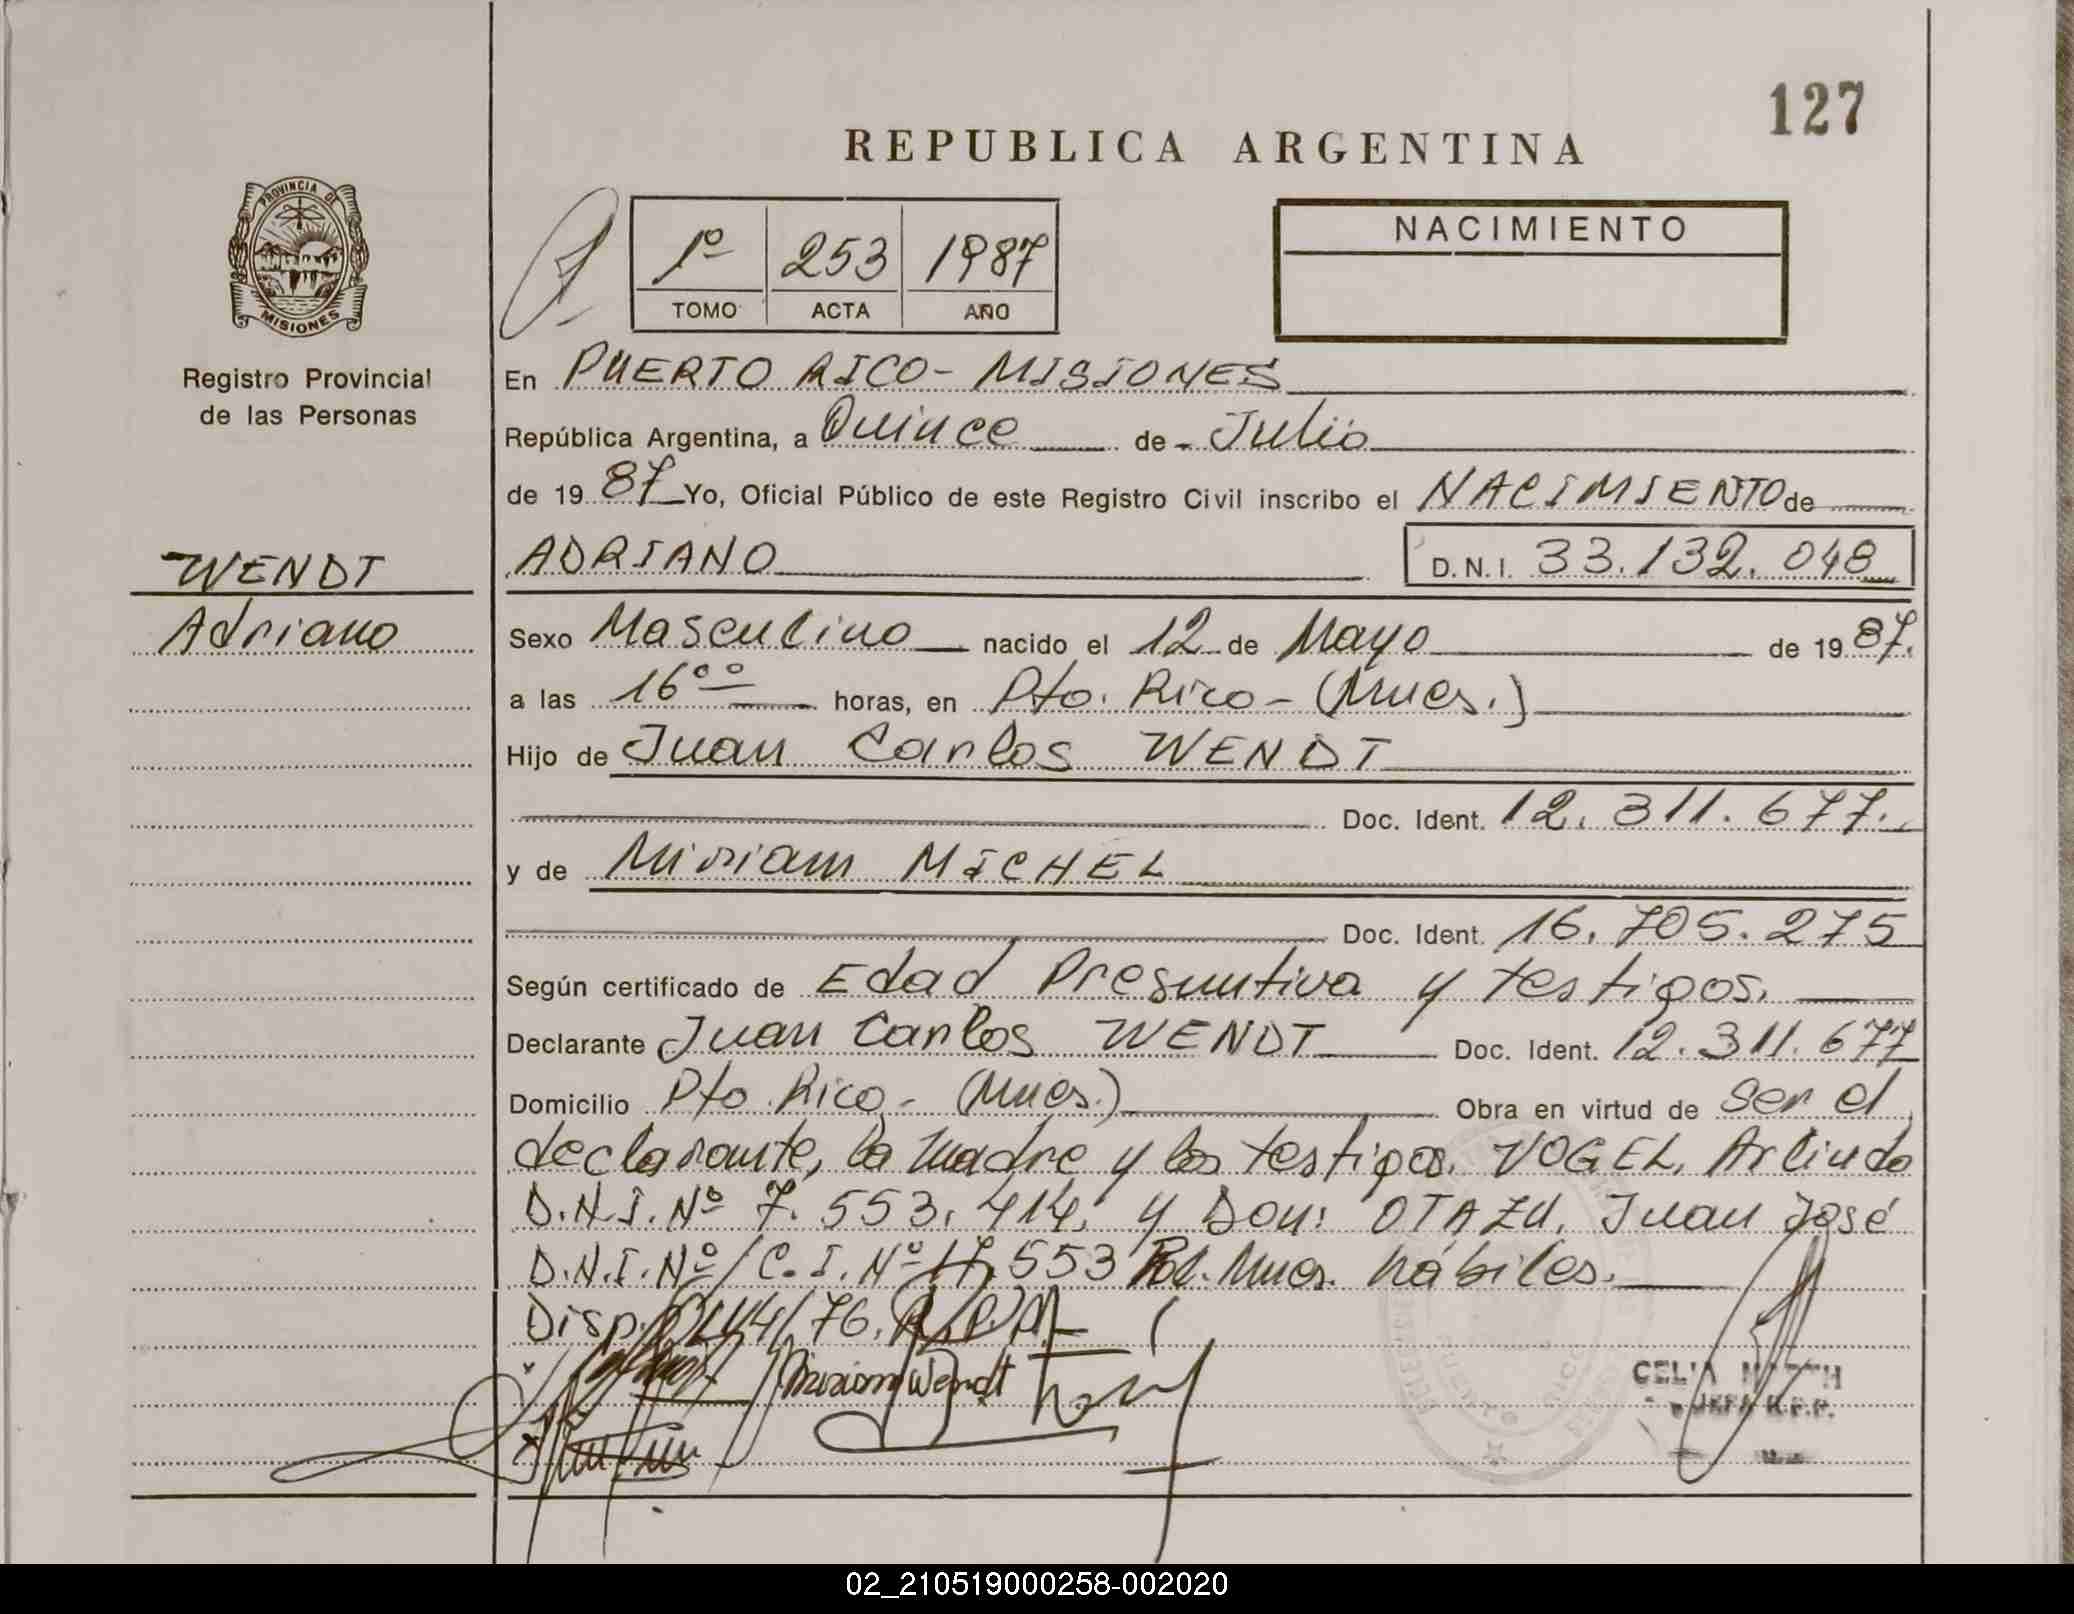 127
REPUBLICA ARGENTINA
PROVINCIA DE
MISIONES
Registro Provincial
de las Personas
1º 253 1987
TOMO ACTA AÑO
NACIMIENTO
En PUERTO RICO - MISIONES
República Argentina, a Quince de Julio
de 19 87 Yo, Oficial Público de este Registro Civil inscribo el NACIMIENTO de
WENDT
Adriano
ADRIANO D.N.I. 33.132.048
Sexo Masculino nacido el 12 de Mayo de 19 87.
a las 16ºº horas, en Pto. Rico - (Mnes.)
Hijo de Juan Carlos WENDT
Doc. Ident. 12.311.677.
y de Miriam MICHEL
Doc. Ident. 16.705.275
Según certificado de Edad Presuntiva y testigos.
Declarante Juan Carlos WENDT Doc. Ident. 12.311.677
Domicilio Pto. Rico - (Mnes.) Obra en virtud de ser el
declarante, la madre y los testigos. VOGEL, Arlindo
D.N.I. Nº 7.553.414, y Don: OTAZU, Juan José
D.N.I. Nº/C.I. Nº 17.553 Pol. Mnes. hábiles.
Disp. /76. R.P.P.
Miriam Wendt
CELIA
JEFA R.P.P.
PUERTO RICO
02_210519000258-002020